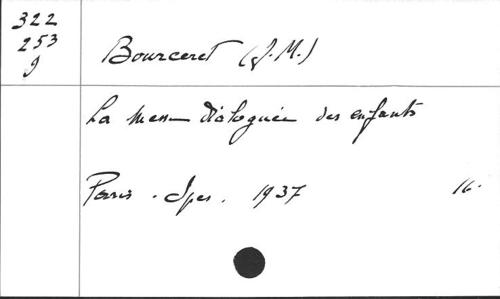 322
253
g
Bourceret (J. M.)
La Messe dialoguée des enfants
Paris. Spes. 1937 16.